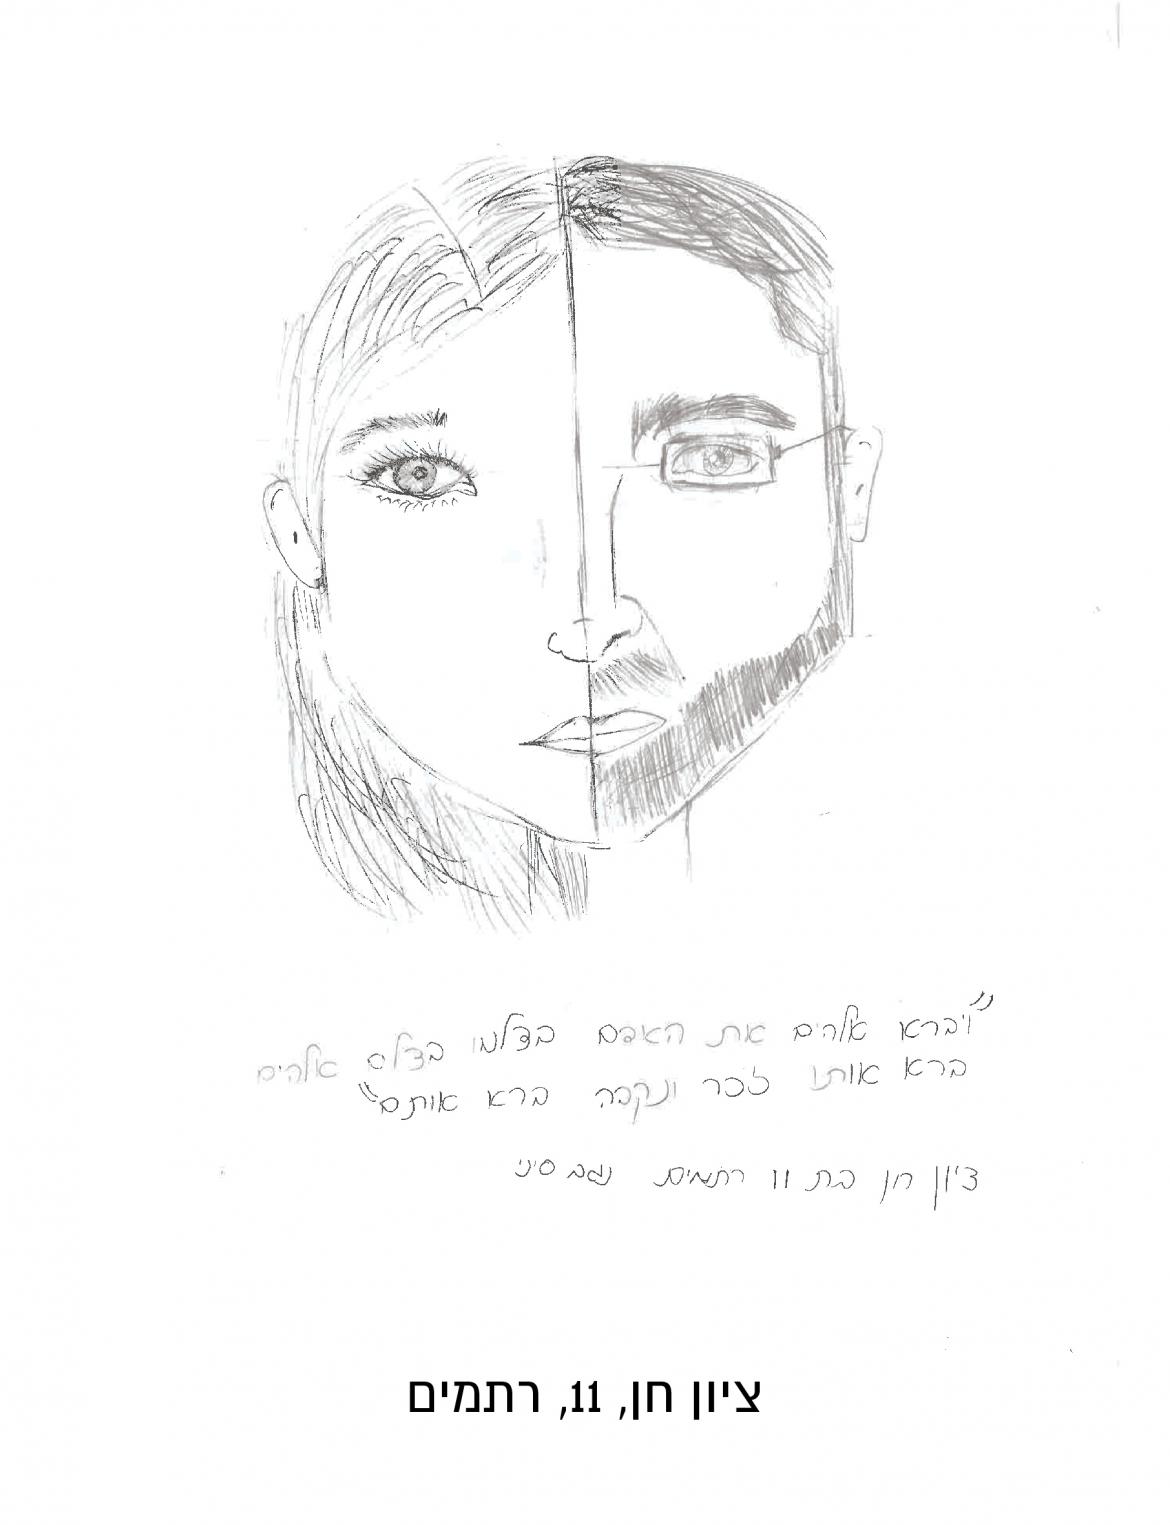 "ויברא אלהים את האדם בצלמו בצלם אלהים
ברא אותו זכר ונקבה ברא אותם"
ציון חן בת 11 רתמים נגב סיני
ציון חן, 11, רתמים